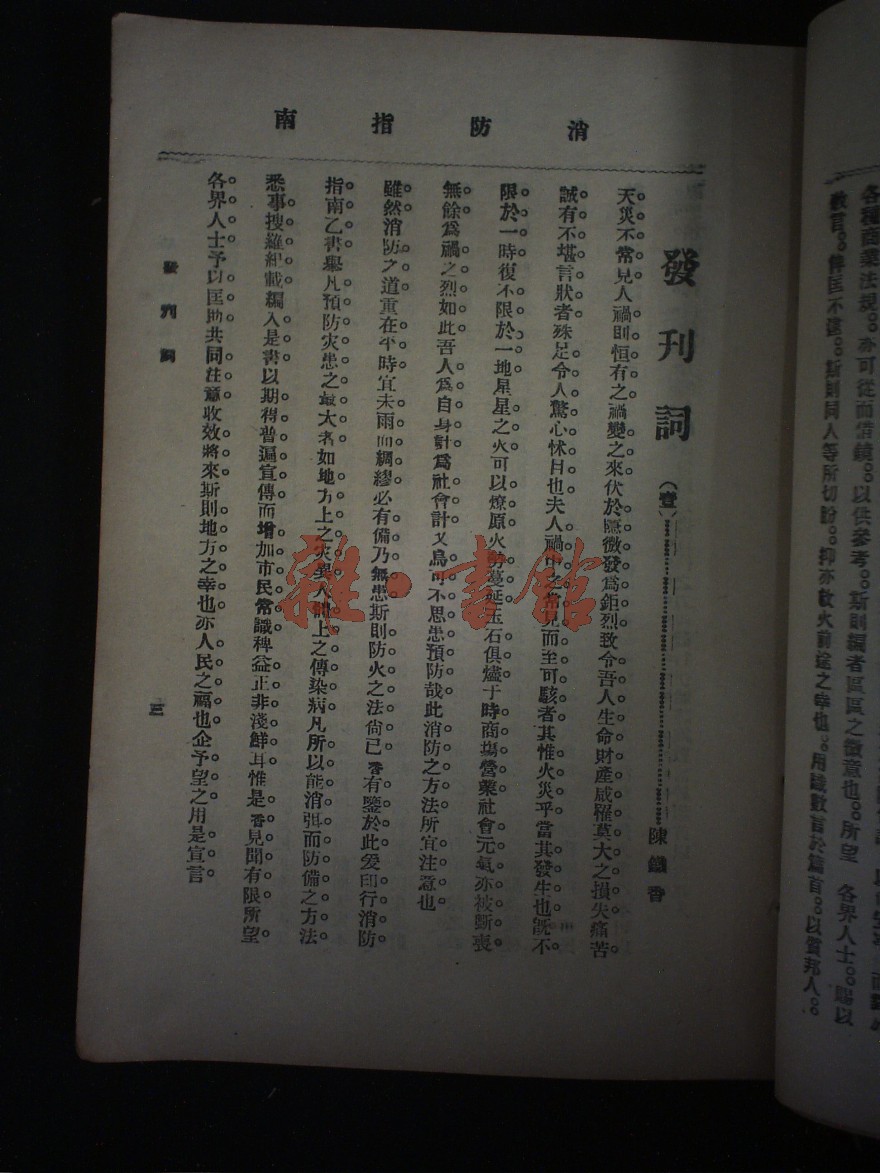 消防指南
發刊詞（壹）
陳鐵香
天災不常見人禍則恒有之禍變之來伏於隱微發爲鉅烈致令吾人生命財產咸罹莫大之損失痛苦
誠有不堪言狀者殊足令人驚心怵目也夫人禍中之常見而至可駭者其惟火災乎當其發生也既不
限於一時復不限於一地星星之火可以燎原火勢蔓延玉石俱燼于時商塲營業社會元氣亦被斷喪
無餘爲禍之烈如此吾人爲自身計爲社會計又烏可不思患預防哉此消防之方法所宜注意也
雖然消防之道重在平時宜未雨而綢繆必有備乃無患斯則防火之法尙已香有鑒於此爰印行消防
指南乙書舉凡預防灾患之最大者如地方上之灾異人體上之傳染病凡所以能消弭而防備之方法
悉事搜羅紀載編入是書以期得普遍宣傳而增加市民常識稗益正非淺鮮耳惟是香見聞有限所望
各界人士予以匡助共同注意收效將來斯則地方之幸也亦人民之福也企予望之用是宣言
發刊詞
三
各種商業法規。亦可從而借鏡。以供參考。斯則編者區區之微意也。所望 各界人士。賜以
教言。俾匡不逮。斯則同人等所切盼。抑亦救火前途之幸也。用識數言於篇首。以質邦人。
雜·書館